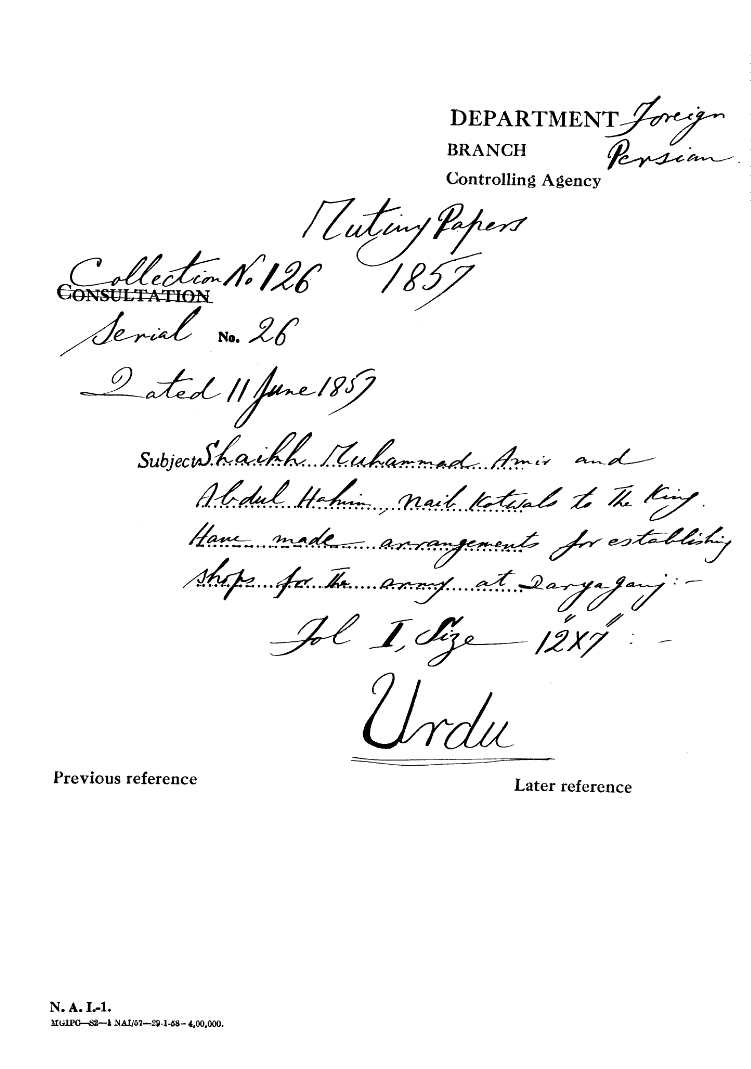 DEPARTMENT Foreign
BRANCH Persian
Controlling Agency
Mutiny Papers
Collection No 126 1857
CONSULTATION
Serial No. 26
Dated 11 June 1857
Subject Shaikh Muhammad Amir and
Abdul Hakim, Naib Kotwals to the King.
Have made arrangements for establishing
shops for the army at Daryaganj:-
Fol I, Size 12"X7" :-
Urdu
Previous reference
Later reference
N. A. I.-1.
MGIPC—S2—1 NAI/57—29-1-58—4,00,000.